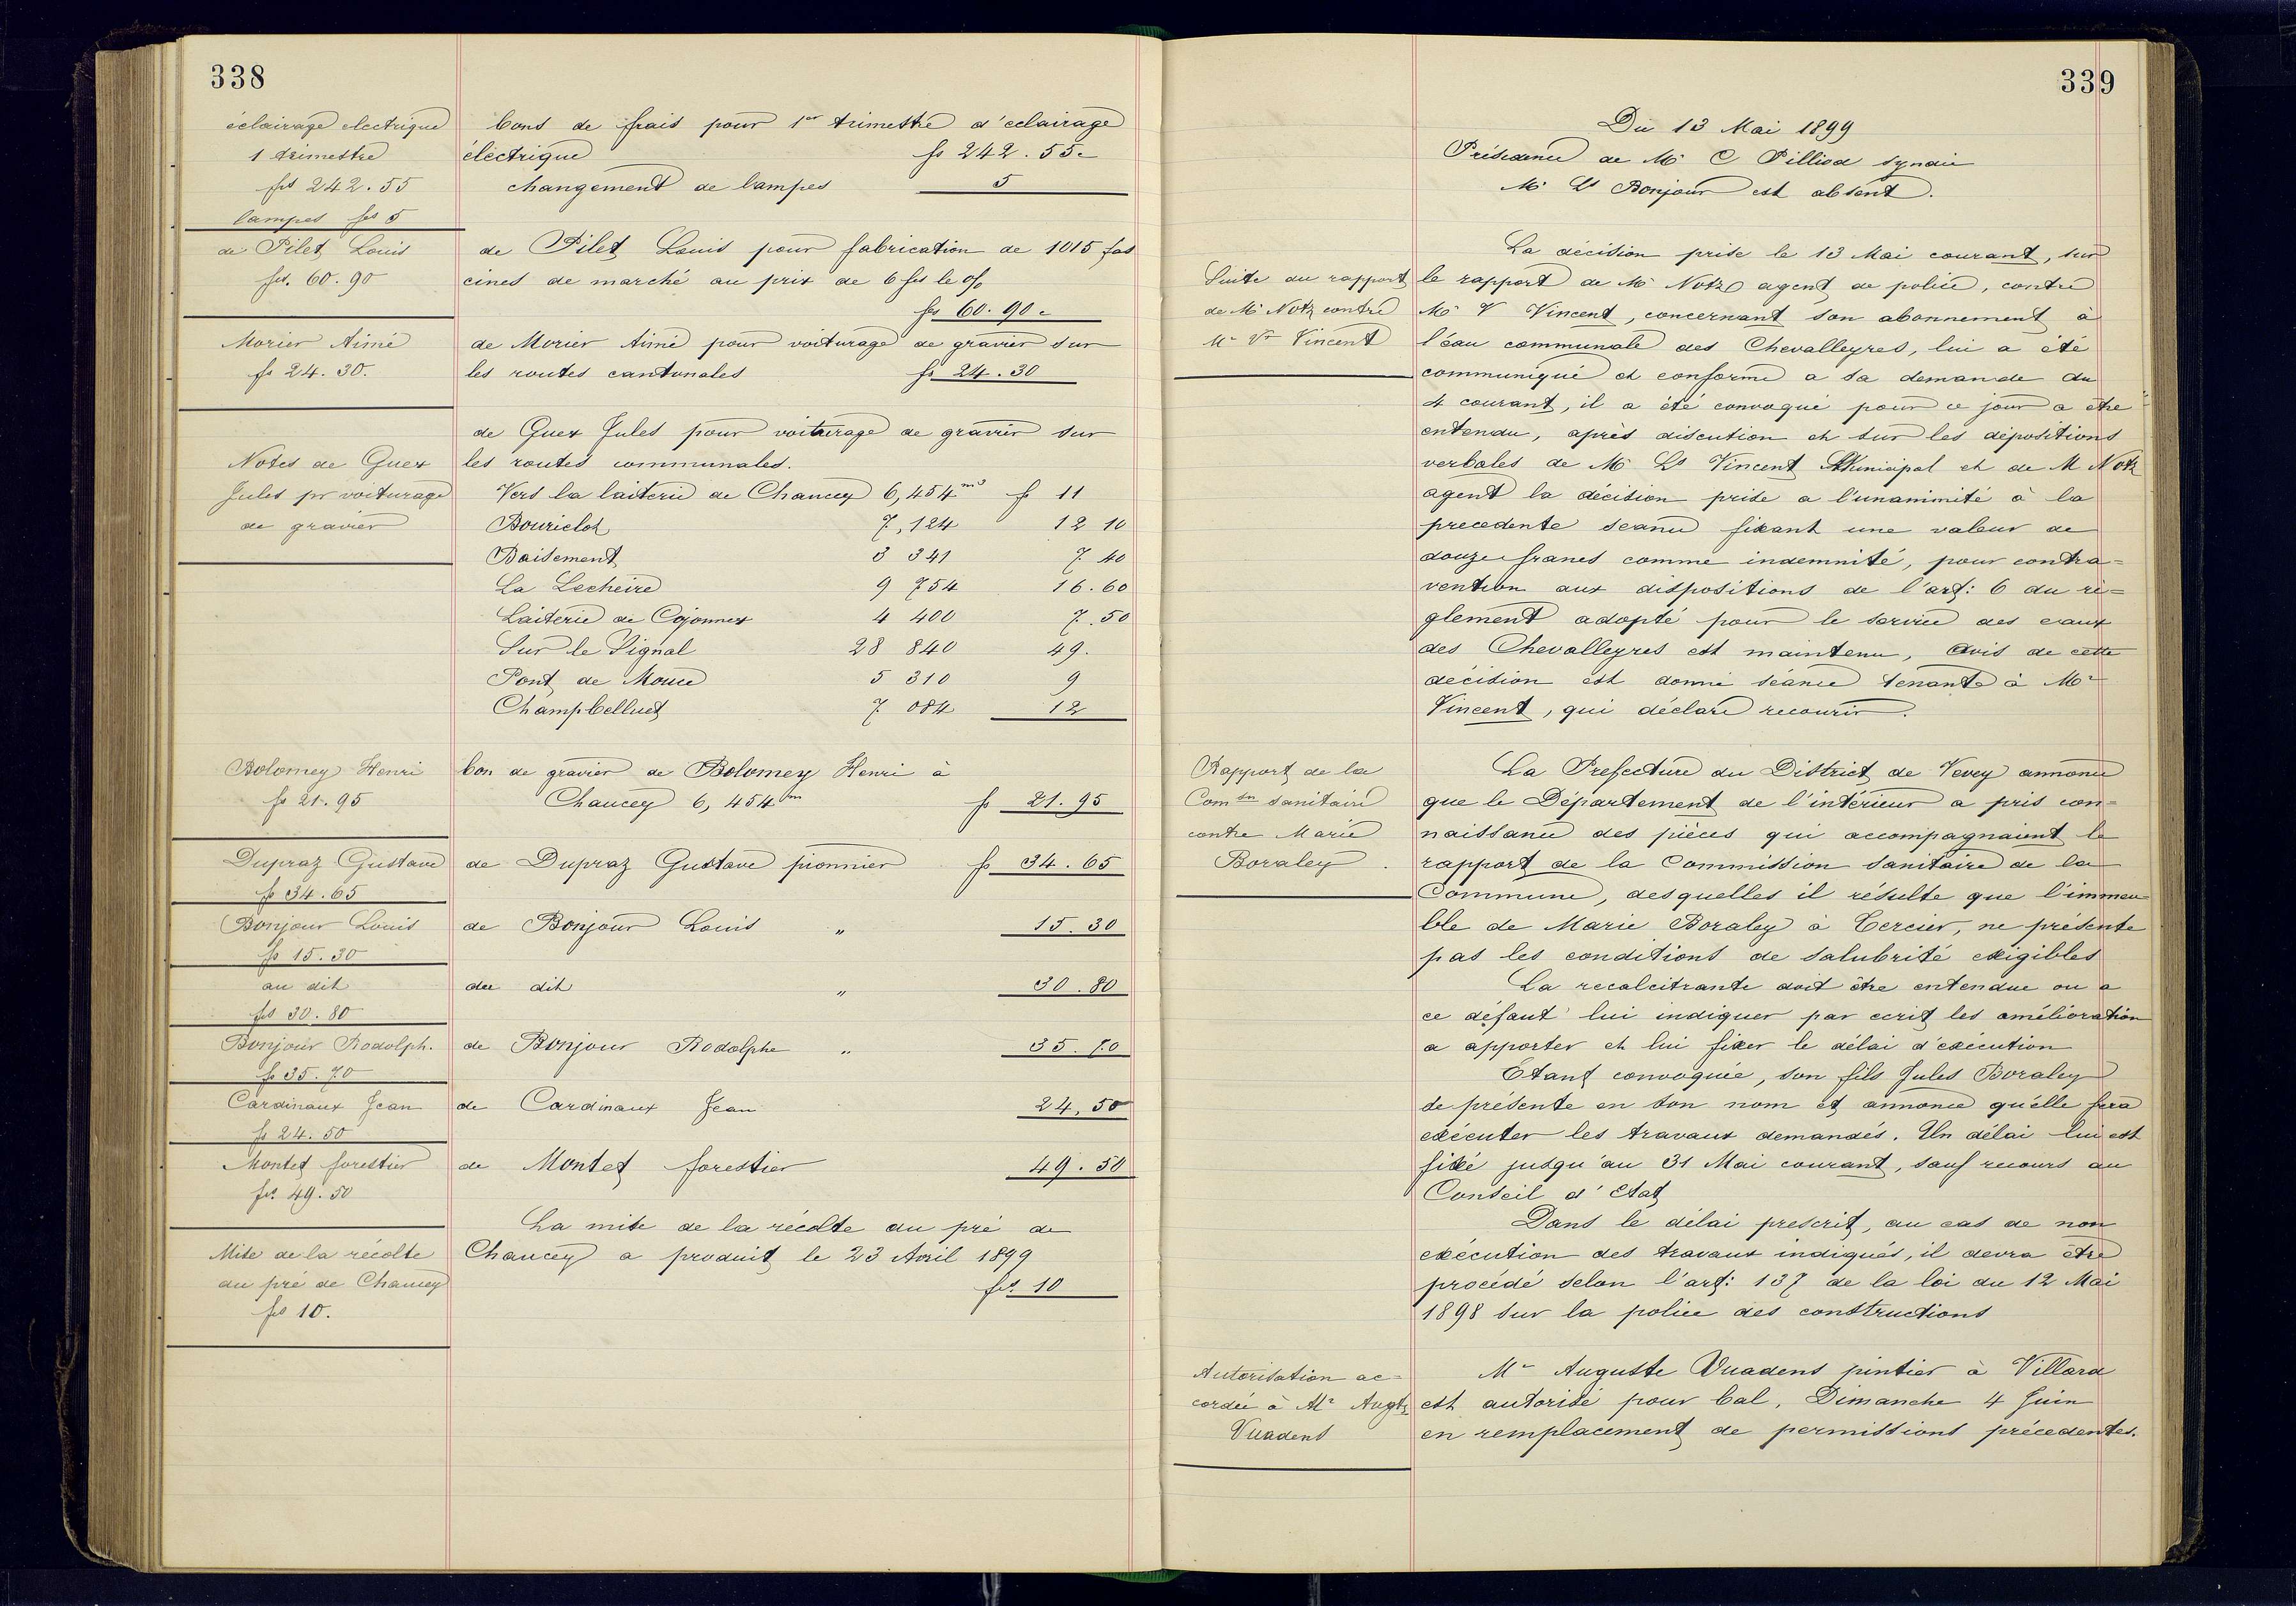 338
éclairage electrique
1 trimestre
frs 242.55
lampes frs 5
bons de frais pour 1er trimestre d'eclairage
éléctrique fr 242.55
changement de lampes 5
de Pilet Louis
frs. 60.90
de Pilet Louis pour fabrication de 1015 fas
cines de marché au prix de 6 frs le %
frs 60.90
Morier Aimé
fr 24.30.
de Morier Aimé pour voiturage de gravier sur
les routes cantonales fr 24.30
Notes de Guex
Jules pr voiturage
de gravier
de Guex Jules pour voiturage de gravier sur
les routes communales.
Vers la laiterie de Chaucey 6,454 m3 fr 11
Bourielot 7,124 12 10
Baisement 3 341 7 40
La Lecheire 9 754 16.60
Laiterie de Cojonnex 4 400 7.50
Sur le Signal 28 840 49.
Pont de Mouce 5 310 9
Champbelluet 7 084 12
Bolomey Henri
fr 21.95
bon de gravier de Bolomey Henri à
Chaucey 6,454 m fr 21.95
Dupraz Gustave
fr 34.65
de Dupraz Gustave pionnier fr 34.65
Bonjour Louis
fr 15.30
de Bonjour Louis " 15.30
au dit
frs 30.80
du dit " 30.80
Bonjour Rodolph.
fr 35.70
de Bonjour Rodolphe " 35.70
Cardinaux Jean
fr 24.50
de Cardinaux Jean 24,50
Montet forestier
frs. 49.50
de Montet forestier 49.50
Mise de la récolte
du pré de Chaucey
frs 10.
La mise de la récolte du pré de
Chaucey a produit le 23 Avril 1899
frs 10
339
Du 13 Mai 1899
Présidence de Mr C Pilliod syndic
Mr Ls Bonjour est absent.
Suite du rapport
de Mr Notz contre
Mr Vr Vincent
La décision prise le 13 Mai courant, sur
le rapport de Mr Notz agent de police, contre
Mr V Vincent, concernant son abonnement à
l'eau communale des Chevalleyres, lui a été
communiqué et conforme a sa demande du
4 courant, il a été convoqué pour ce jour a être
entendu, après discution et sur les dépositions
verbales de Mr Ls Vincent Municipal et de M Notz
agent la décision prise a l'unanimité à la
precedente seance fixant une valeur de
douze francs comme indemnité, pour contra=
vention aux dispositions de l'art: 6 du rè=
glement adopté pour le service des eaux
des Chevalleyres est maintenu, avis de cette
décision est donné séance tenante à Mr
Vincent, qui déclare recourir.
Rapport de la
Comson sanitaire
contre Marie
Boraley.
La Prefecture du District de Vevey annonce
que le Département de l'intérieur a pris con=
naissance des pièces qui accompagnaient le
rapport de la Commission sanitaire de la
Commune, desquelles il résulte que l'immeu=
ble de Marie Boraley à Tercier, ne présente
pas les conditions de salubrité exigibles
La recalcitrante doit être entendue ou a
ce défaut lui indiquer par ecrit les amélioration
a apporter et lui fixer le délai d'exécution
Etant convoquée, son fils Jules Boraley
se présente en son nom et annonce qu'elle fera
exécuter les travaux demandés. Un délai lui est
fixé jusqu'au 31 Mai courant, sauf recours au
Conseil d'Etat
Dans le délai prescrit, au cas de non
exécution des travaux indiqués, il devra être
procédé selon l'art: 137 de la loi du 12 Mai
1898 sur la police des constructions
Autorisation ac=
cordée à Mr Augte
Vuadens
Mr Auguste Vuadens pintier à Villard
est autorisé pour bal, Dimanche 4 Juin
en remplacement de permissions précedentes.